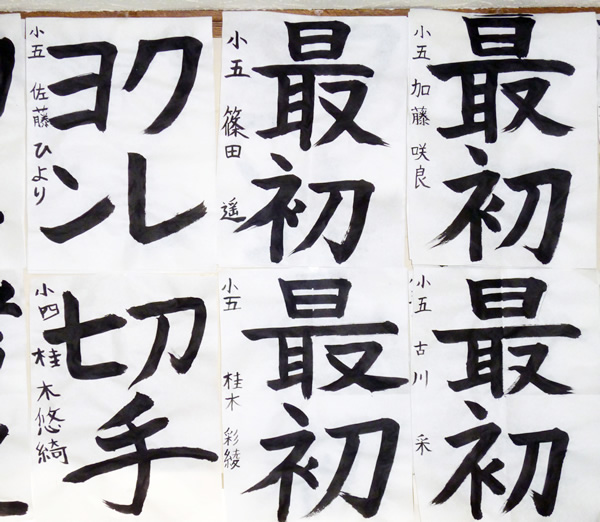 最初
小五 加藤 咲良
最初
小五 篠田 遥
クレ
ヨン
小五 佐藤 ひより
最初
小五 古川 采
最初
小五 桂木 彩綾
切手
小四 桂木悠綺